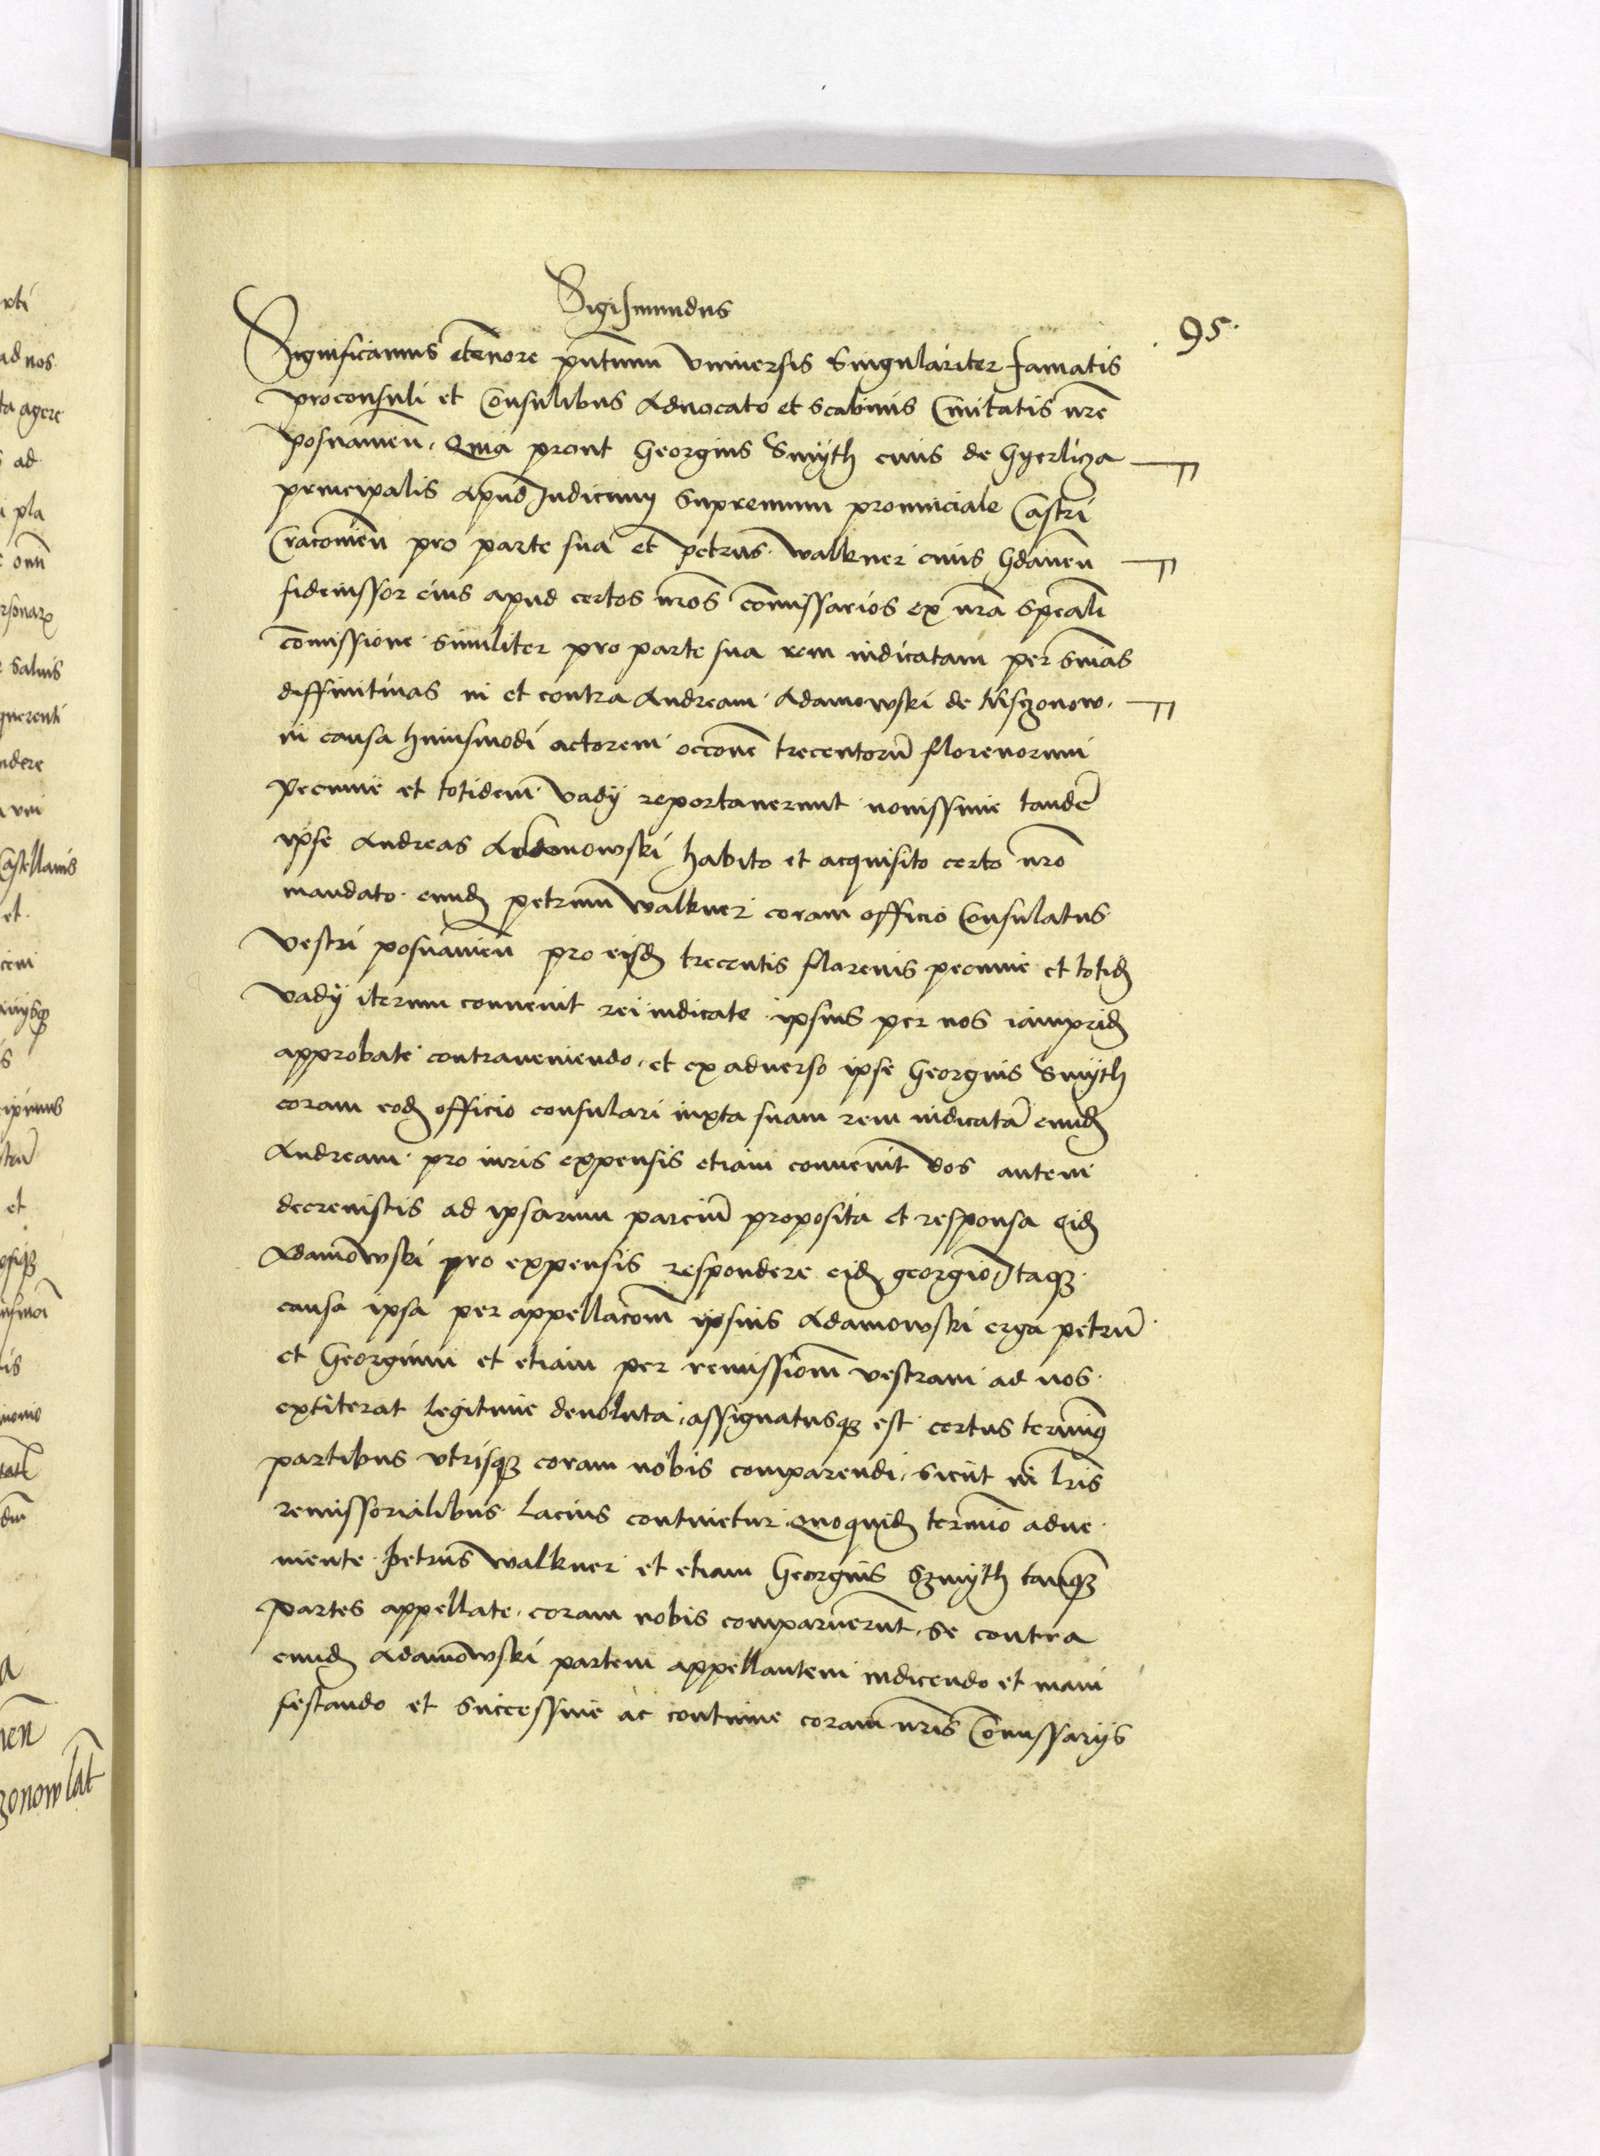 Sigismundus
95.
Significamus etenore pntium universis Singulariter famatis
proconsuli et Consulibus Advocato et scabinis Civitatis nre
posnanien. Quia prout Georgius Smÿth civis de Gyerlicza
principalis apud Iudicium Supremum provinciale Castri
Cracovien pro parte sua et petrus Walkner civis Gdanen
fideiussor eius apud certos nros comissarios ex nra speali
comissione similiter pro parte sua rem iudicatam per snias
diffinitivas in et contra Andream Adamowski de
in causa huiusmodi actorem occone trecentoru florenorum
pecunie et totidem vadÿ reportaverunt novissime tande
ipse Andreas Adamowski habito et acquisito certo nro
mandato eund petrum Walkner coram officio Consulatus
Vestri posnanien pro eisd trecentis florenis pecunie et totid
vadÿ iterum convenit rei iudicate ipsius per nos iamprid
approbate contraveniendo, et ex adverso ipse Georgius Smÿth
coram eod officio consulari iuxta suam rem iudicata eund
Andream pro iuris expensis etiam convenit vos autem
decrevistis ad ipsarum parciu proposita et responsa eid
Adamowski pro expensis respondere eid georgio Itaque
causa ipsa per appellacom ipsius Adamowski erga petru
et Georgium et etiam per remissiom vestram ad nos
extiterat legitime devoluta, assignatusque est certus terminus
partibus utrisque coram nobis comparendi, sicut in lris
remissorialibus lacius continetur. Quoquid termio adve
niente Petrus Walkner et etiam Georgius Szmyth tamque
partes appellate, coram nobis comparuerunt, se contra
eund Adamowski partem appellantem iudicendo et mani
festando et successive ac continue coram nris Comissarijs